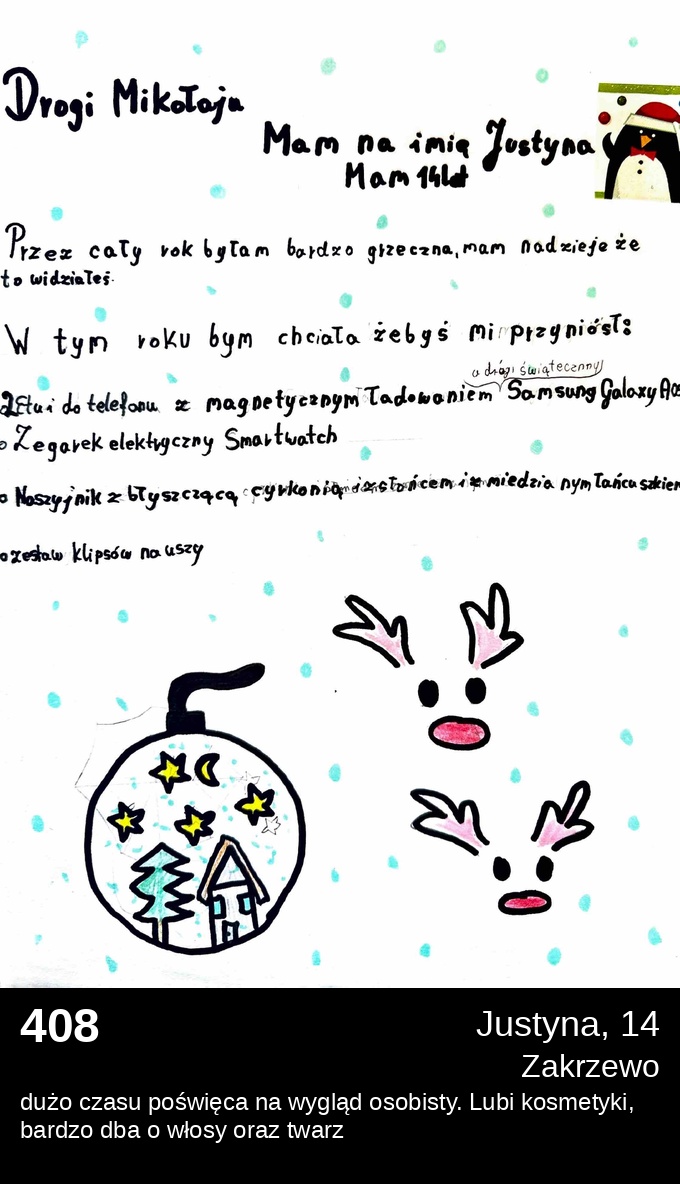 Drogi Mikołaju
Mam na imię Justyna
Mam 14lat
Przez cały rok byłam bardzo grzeczna, mam nadzieje że
to widziałeś.
W tym roku bym chciała żebyś mi przyniósł:
świątecznny
Etui do telefonu z magnetycznym Ładowaniem Samsung Galaxy
o Zegarek elektryczny Smartwatch
o Naszyjnik z błyszczącą cyrkonią i z słońcem i z miedzia nym łańcuszkiem
o zestaw klipsów na uszy
408
Justyna, 14
Zakrzewo
dużo czasu poświęca na wygląd osobisty. Lubi kosmetyki,
bardzo dba o włosy oraz twarz